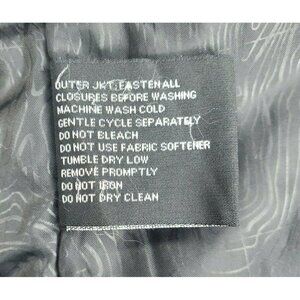 OUTER JKT: FASTEN ALL
CLOSURES BEFORE WASHING
MACHINE WASH COLD
GENTLE CYCLE SEPARATELY
DO NOT BLEACH
DO NOT USE FABRIC SOFTENER
TUMBLE DRY LOW
REMOVE PROMPTLY
DO NOT IRON
DO NOT DRY CLEAN